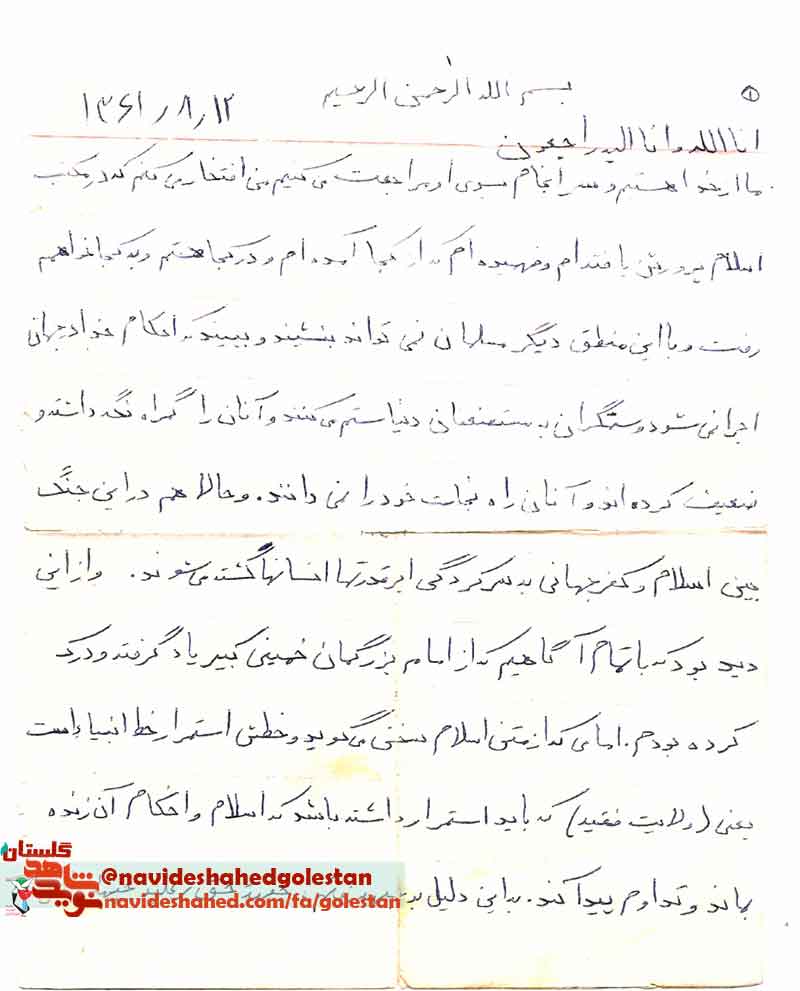 ۱
بسم الله الرحمن الرحیم
۱۳۶۱٫۸٫۱۲
انا الله و انا الیه راجعون
ما از خدا هستم و سرانجام بسوی او مراجعت می کنیم من افتخار می کنم که در مکتب
اسلام پرورش یافته ام و فهمیده ام که از کجا آمده ام و در کجا هستم و به کجا خواهیم
رفت و با این منطق دیگر مسلمان نمی تواند بنشیند و ببیند که احکام خدا در جهان
اجرا نمی شود و ستمگران به مستضعفان دنیا ستم می کنند و آنان را گمراه نگه داشته و
ضعیف کرده اند و آنان راه نجات خود را نمی دانند. و حالا هم در این جنگ
بین اسلام و کفر جهانی به سرکردگی ابرقدرتها انسانها کشته می شوند. و از این
دید بود که با تمام آگاهیم که از امام بزرگمان خمینی کبیر یاد گرفته و درک
کرده بودم. امامی که از متن اسلام سخن می گوید و خطش استمرار خط انبیاء است
یعنی (ولایت فقیه) که باید استمرار داشته باشد که اسلام و احکام آن زنده
بماند و تداوم پیدا کند. به این دلیل
گلستان
نوید شاهد
@navideshahedgolestan
navideshahed.com/fa/golestan